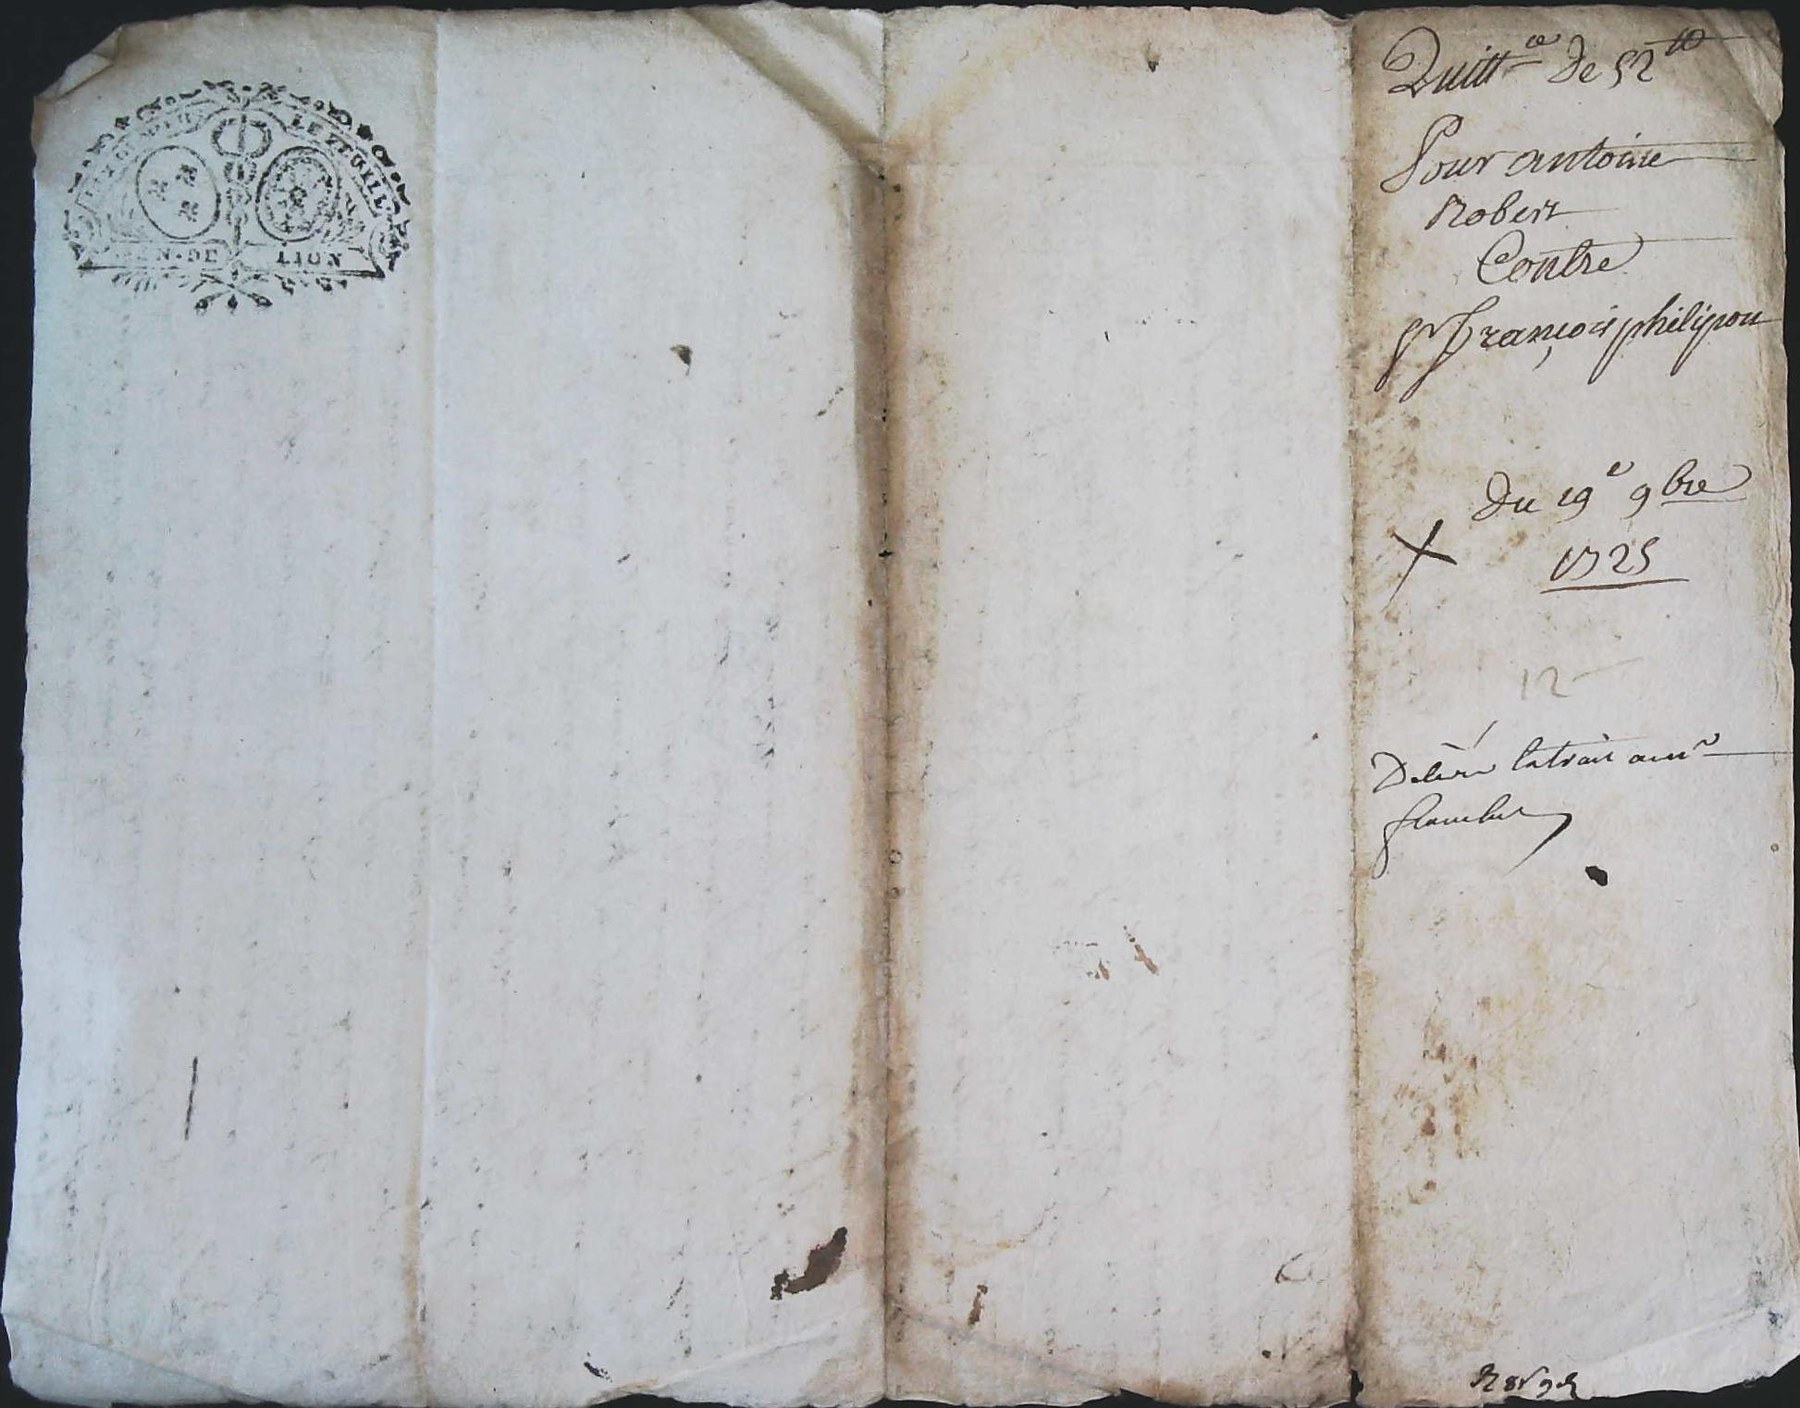 GEN·DE LION
Quitt.ce De 52 tt
Pour antoine
Robert
Contre
Sr françois philipon
Du 19e 9bre
1725
12
Délivré Extrait au Sr